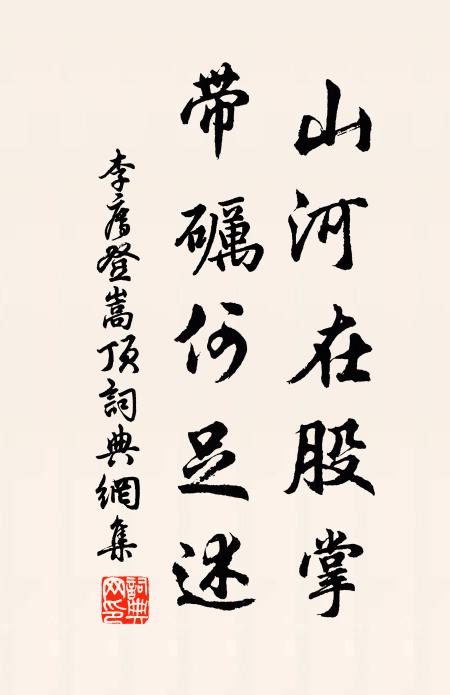 山河在股掌
带礪何足述
李廌登嵩頂詞典網集
詞典網印